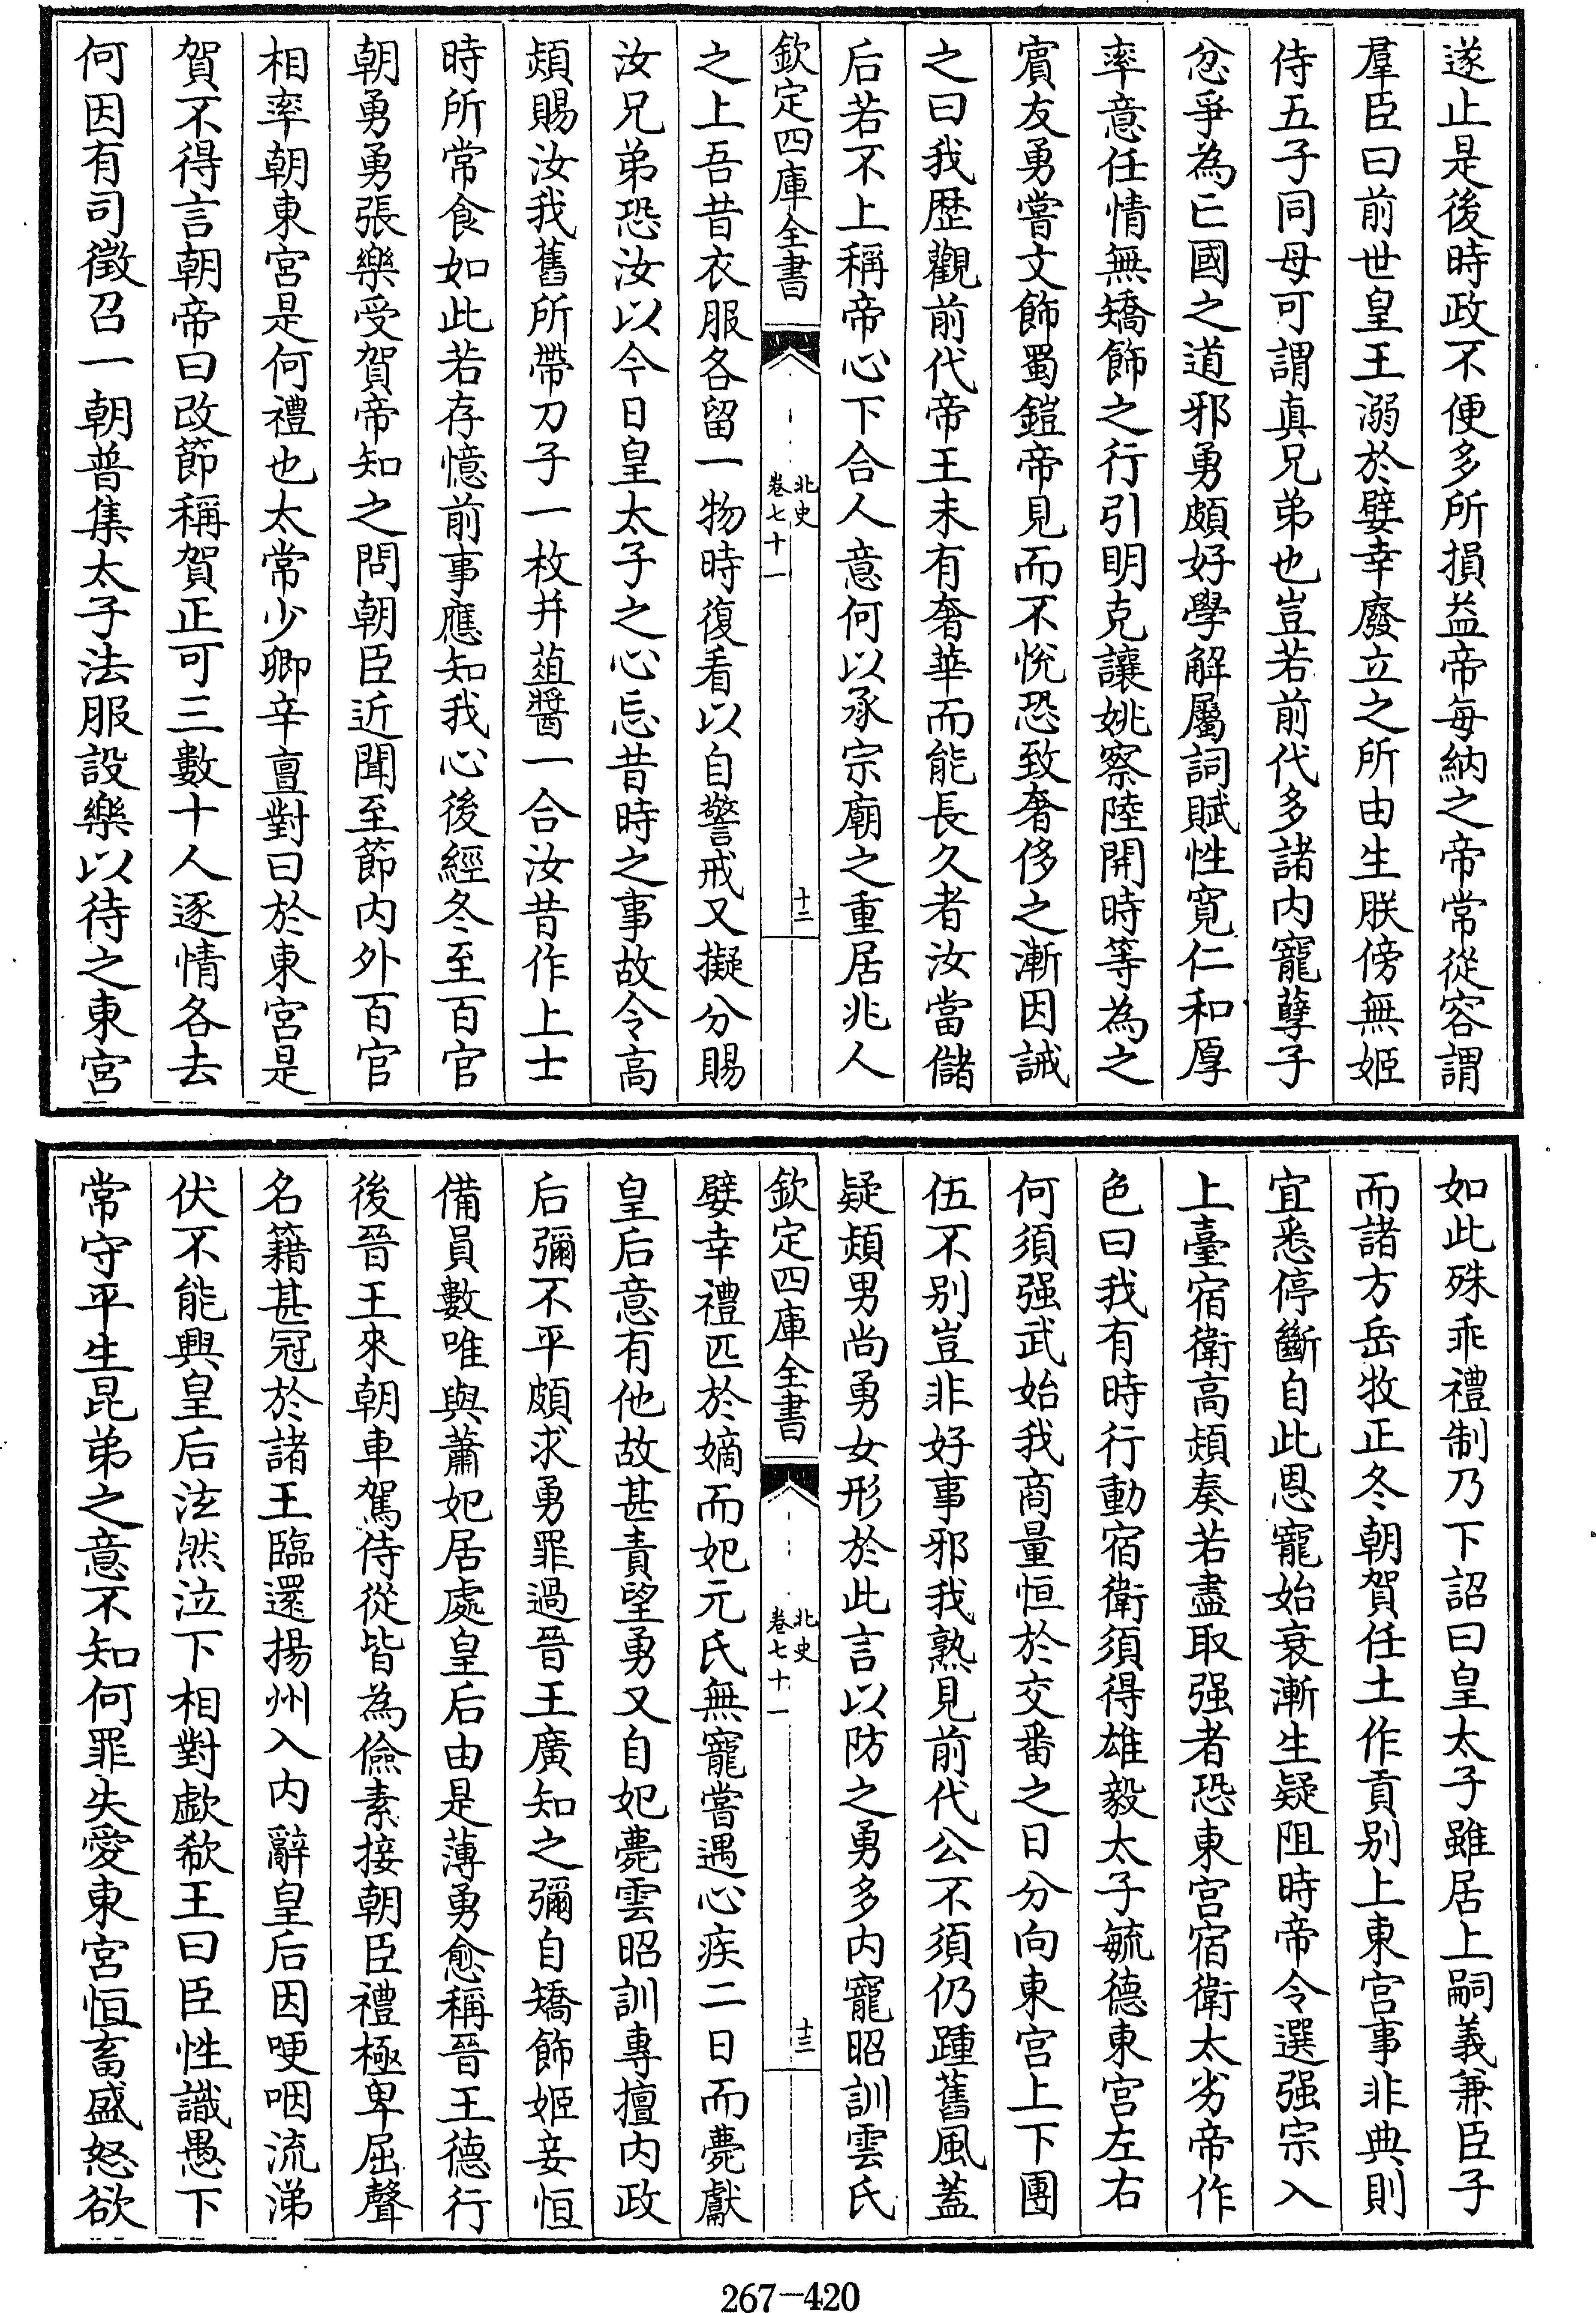 遂止是後時政不便多所損益帝每納之帝常從容謂
羣臣曰前世皇王溺於嬖幸廢立之所由生朕傍無姬
侍五子同母可謂真兄弟也豈若前代多諸内寵孽子
忿爭為亡國之道邪勇頗好學解屬詞賦性寛仁和厚
率意任情無矯飾之行引明克讓姚察陸開時等為之
賓友勇嘗文飾蜀鎧帝見而不悅恐致奢侈之漸因誡
之曰我歷觀前代帝王未有奢華而能長久者汝當儲
后若不上稱帝心下合人意何以承宗廟之重居兆人
欽定四庫全書 北史 卷七十一 十二
之上吾昔衣服各留一物時復看以自警戒又擬分賜
汝兄弟恐汝以今日皇太子之心忘昔時之事故令高
熲賜汝我舊所帶刀子一枚并葅醬一合汝昔作上士
時所常食如此若存憶前事應知我心後經冬至百官
朝勇勇張樂受賀帝知之問朝臣近聞至節内外百官
相率朝東宮是何禮也太常少卿辛亶對曰於東宮是
賀不得言朝帝曰改節稱賀正可三數十人逐情各去
何因有司徵召一朝普集太子法服設樂以待之東宮
如此殊乖禮制乃下詔曰皇太子雖居上嗣義兼臣子
而諸方岳牧正冬朝賀任土作貢别上東宮事非典則
宜悉停斷自此恩寵始衰漸生疑阻時帝令選强宗入
上臺宿衛高熲奏若盡取强者恐東宮宿衛太劣帝作
色曰我有時行動宿衛須得雄毅太子毓德東宮左右
何須强武始我商量恒於交番之日分向東宮上下團
伍不别豈非好事邪我熟見前代公不須仍踵舊風蓋
疑熲男尚勇女形於此言以防之勇多内寵昭訓雲氏
欽定四庫全書 北史 卷七十一 十三
嬖幸禮匹於嫡而妃元氏無寵嘗遇心疾二日而薨獻
皇后意有他故甚責望勇又自妃薨雲昭訓專擅内政
后彌不平頗求勇罪過晉王廣知之彌自矯飾姬妾恒
備員數唯與蕭妃居處皇后由是薄勇愈稱晉王德行
後晉王來朝車駕侍從皆為儉素接朝臣禮極卑屈聲
名籍甚冠於諸王臨還揚州入内辭皇后因哽咽流涕
伏不能興皇后泫然泣下相對歔欷王曰臣性識愚下
常守平生昆弟之意不知何罪失愛東宮恒畜盛怒欲
267-420